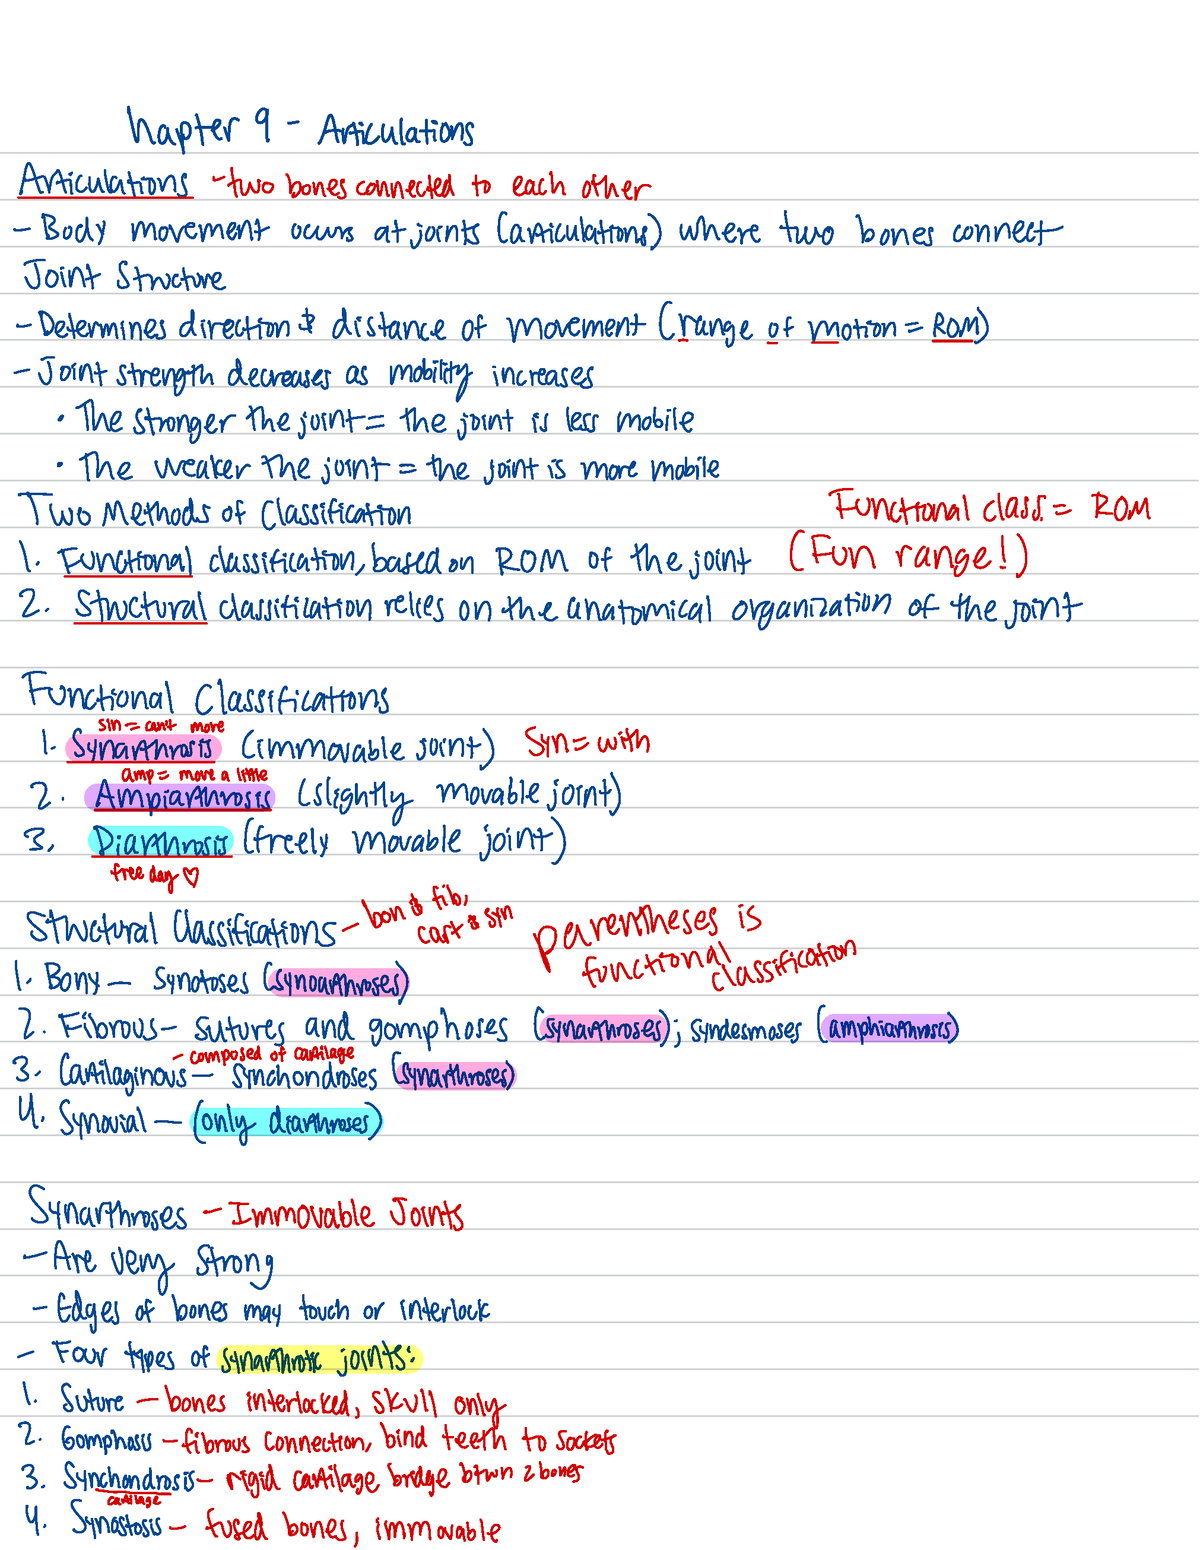 hapter 9 - Articulations
Articulations - two bones connected to each other
- Body movement occurs at joints (articulations) where two bones connect
Joint Structure
- Determines direction & distance of movement (range of motion = ROM)
- Joint strength decreases as mobility increases
• The stronger the joint = the joint is less mobile
• The weaker the joint = the joint is more mobile
Two Methods of Classification
Functional class. = ROM
1. Functional classification, based on ROM of the joint (Fun range!)
2. Structural classification relies on the anatomical organization of the joint
Functional Classifications
sin = can't move
1. Synarthrosis (immovable joint) Syn = with
amp = move a little
2. Ampiarthrosis (slightly movable joint)
3. Diarthrosis (freely movable joint)
free day ♡
Structural Classifications - bon & fib,
cart & syn
parentheses is
functional
classification
1. Bony - Synotoses (synoarthroses)
2. Fibrous - sutures and gomphoses (synarthroses); syndesmoses (amphiarthrosis)
- composed of cartilage
3. Cartilaginous - synchondroses (synarthroses)
4. Synovial - (only diarthroses)
Synarthroses - Immovable Joints
- Are very strong
- Edges of bones may touch or interlock
- Four types of synarthrotic joints:
1. Suture - bones interlocked, skull only
2. Gomphosis - fibrous connection, bind teeth to sockets
3. Synchondrosis - rigid cartilage bridge btwn 2 bones
cartilage
4. Synostosis - fused bones, immovable